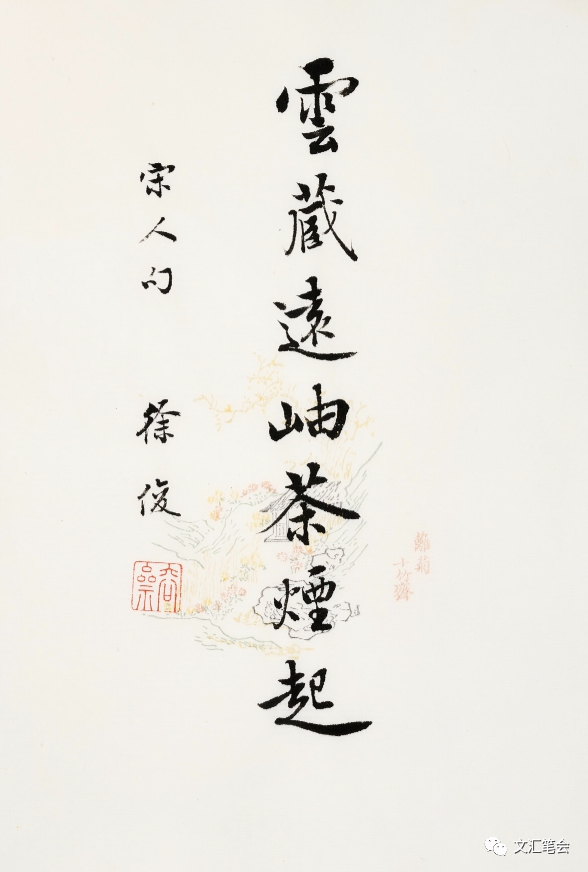 雲藏遠岫茶煙起
宋人句
徐俊
十竹齋
文汇笔会